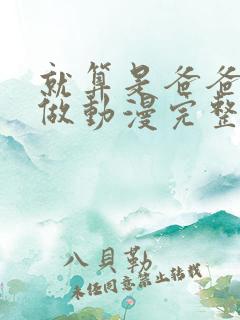 就算是爸爸
做動漫完整
八貝勒
未经同意禁止转载